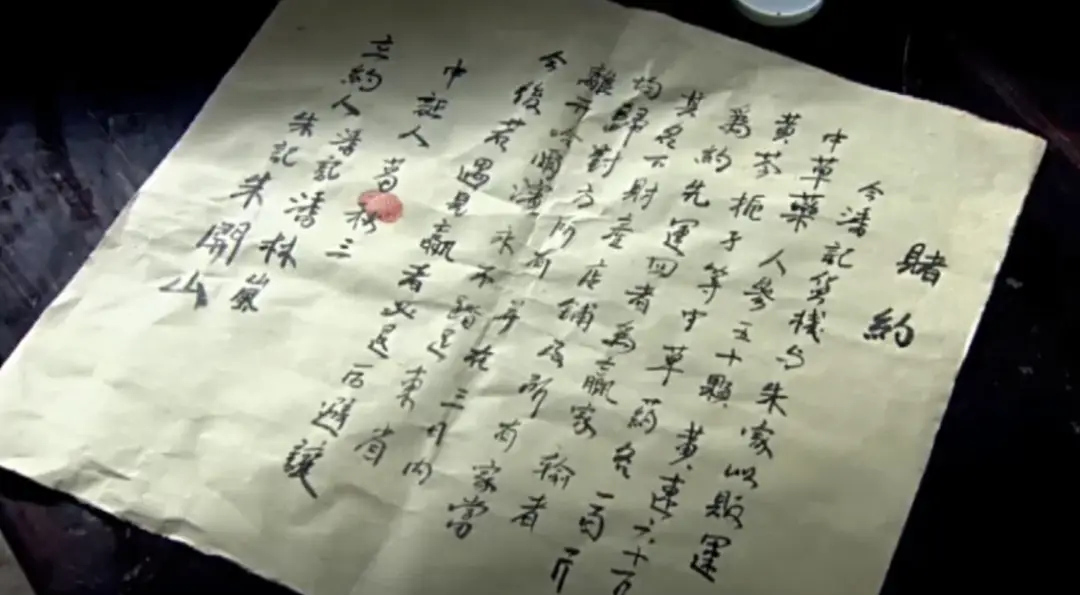 賭約
今潘記貨棧与朱家以販運
中草藥人參五十顆黃連六十斤
黃芩扼子等中草药各一百斤
為約先運回者為贏家輸者
其名下財產店鋪及所有家當
均歸對方所有并在三月内
離开哈爾濱永不踏足東省
今後若遇見贏者必退后避讓
中証人葛三
立約人潘記潘林嵐
朱記朱開山